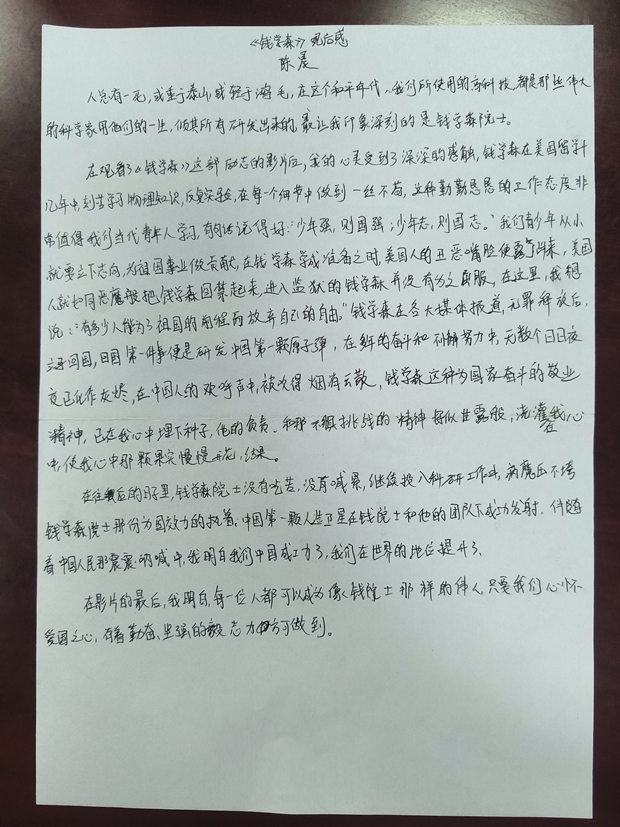 《钱学森》观后感
陈晨
人总有一死，或重于泰山，或轻于鸿毛，在这个和平年代，我们所使用的高科技，都是那些伟大
的科学家用他们的一生，倾其所有研发出来的，最让我印象深刻的是钱学森院士。
在观看了《钱学森》这部励志的影片后，我的心灵受到了深深的感触，钱学森在美国留学十
几年中，刻苦学习物理知识，反复实验，在每个细节中做到一丝不苟，这种勤勤恳恳的工作态度非
常值得我们当代青年人学习，有句话说得好：“少年强，则国强；少年志，则国志。”我们青少年从小
就要立下志向，为祖国事业做贡献，在钱学森学成准备之时，美国人的丑恶嘴脸便露了出来，美国
人就如同恶魔般把钱学森囚禁起来，进入监狱的钱学森并没有为之屈服，在这里，我想
说：“有多少人能为了祖国的前程而放弃自己的自由。”钱学森在各大媒体报道，无罪释放后，
立马回国，回国第一件事便是研发中国第一颗原子弹，在多年的奋斗和不懈努力中，无数个日日夜
夜已化作灰烬，在中国人的欢呼声中，被吹得烟消云散，钱学森这种为国家奋斗的敬业
精神，已在我心中埋下种子，他的负责、和那不惧挑战的精神好似甘露般，浇灌在我心
中，使我心中那颗果实慢慢开花，结果。
在往后的日子里，钱学森院士没有吃苦，没有喊累，继续投入科研工作中，病魔压不垮
钱学森院士那份为国效力的执着，中国第一颗人造卫星在钱院士和他的团队下成功发射，伴随
着中国人民那震震呐喊中，我明白我们中国成功了，我们在世界的地位提升了、
在影片的最后，我明白，每一位人都可以成为像钱院士那样的伟人，只要我们心怀
爱国之心，有着勤奋、坚强的毅志力方可做到。